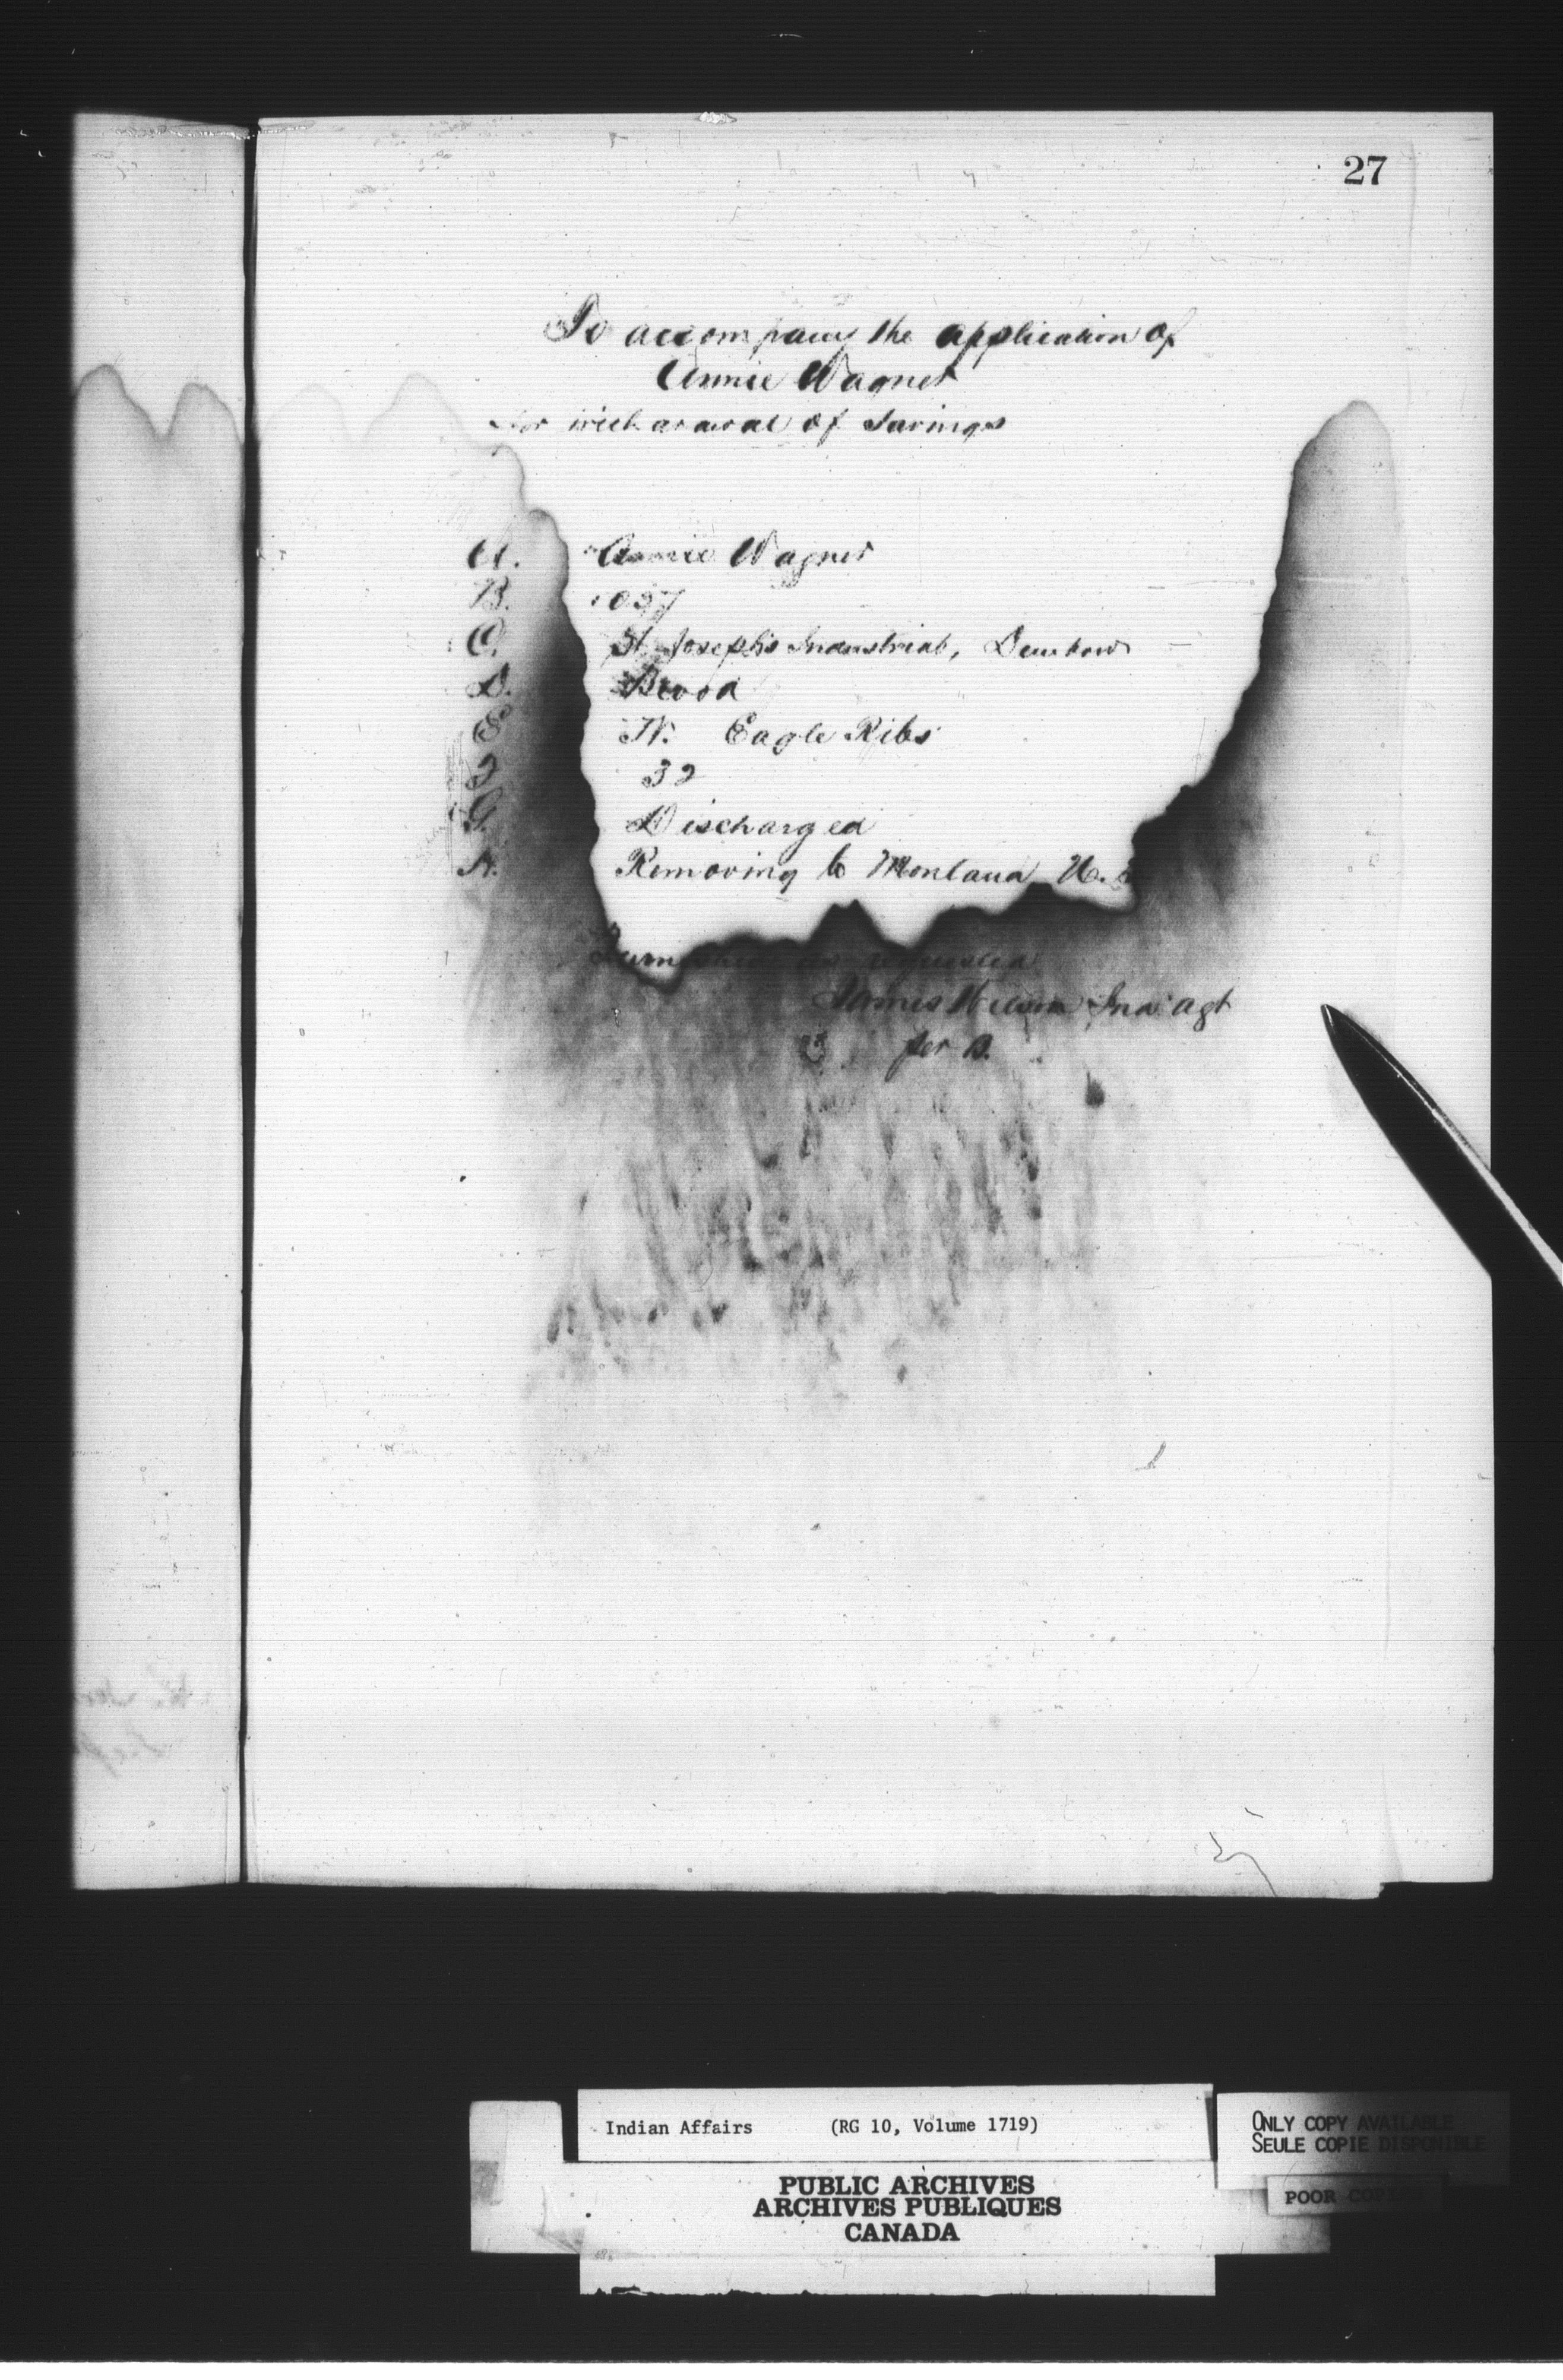 27
To accompany the application of
Annie Wagner
for withdrawal of Savings
A. Annie Wagner
B. 1027
C. St. Joseph's Industrial, Dunbow
D. Blood
E N. Eagle Ribs
F 32
G. Discharged
H. Removing to Montana U.S
Furnished as requested
James Wilson Ind. Agt
per D.
Indian Affairs (RG 10, Volume 1719)
PUBLIC ARCHIVES
ARCHIVES PUBLIQUES
CANADA
ONLY COPY AVAILABLE
SEULE COPIE DISPONIBLE
POOR COPY